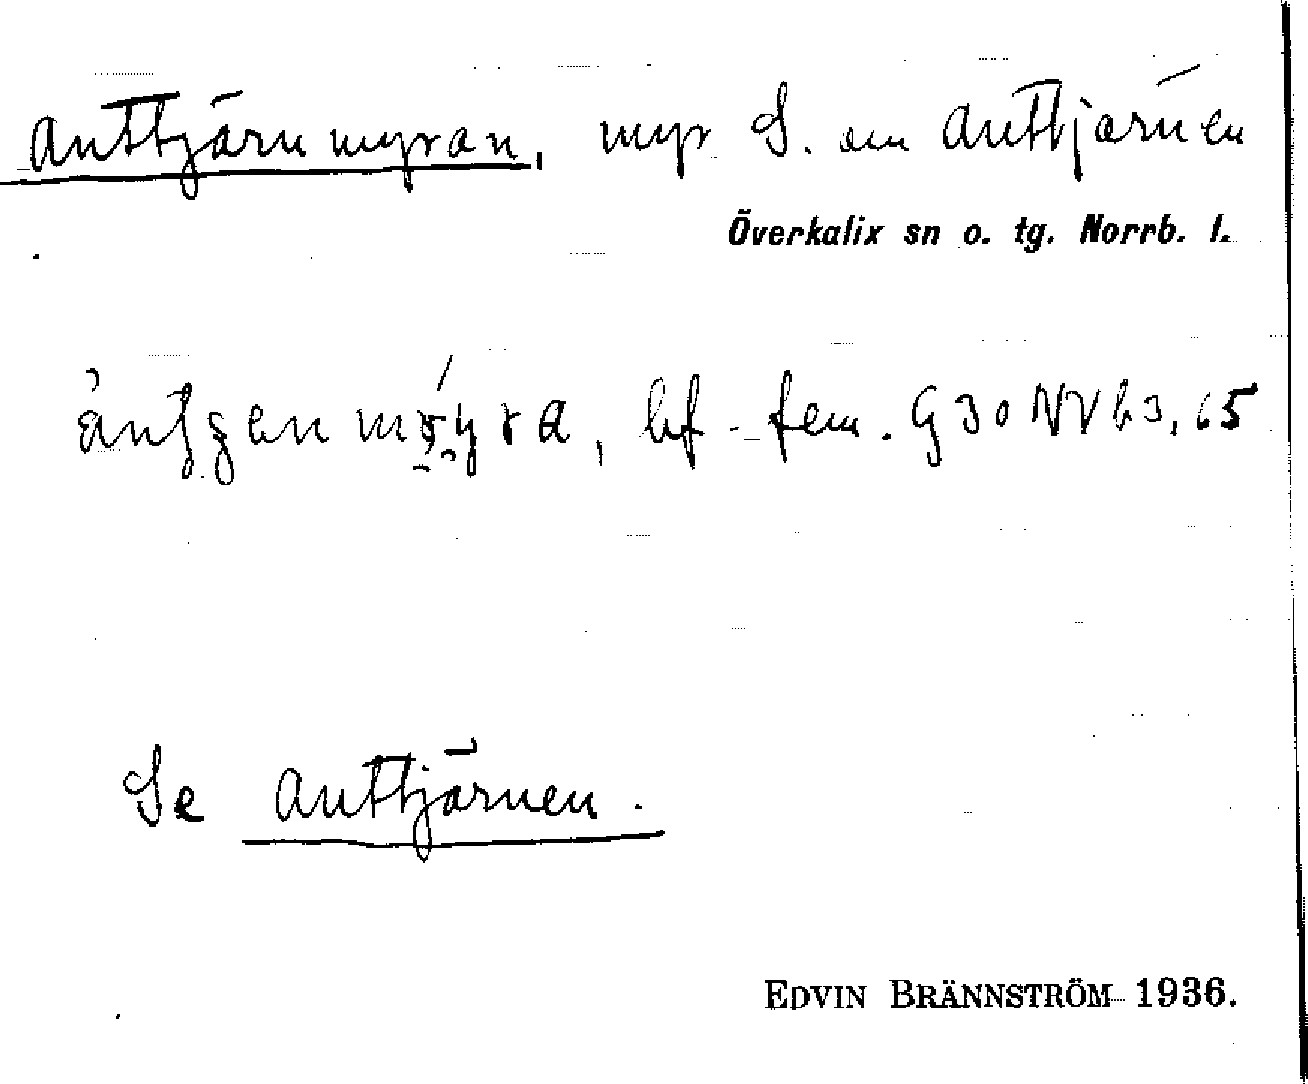 Anttjärnmyran, myr S. om Anttjärnen
Överkalix sn o. tg. Norrb. l.
bf. fem. G30 NV b3, 65
Se Anttjärnen.
EDVIN BRÄNNSTRÖM 1936.